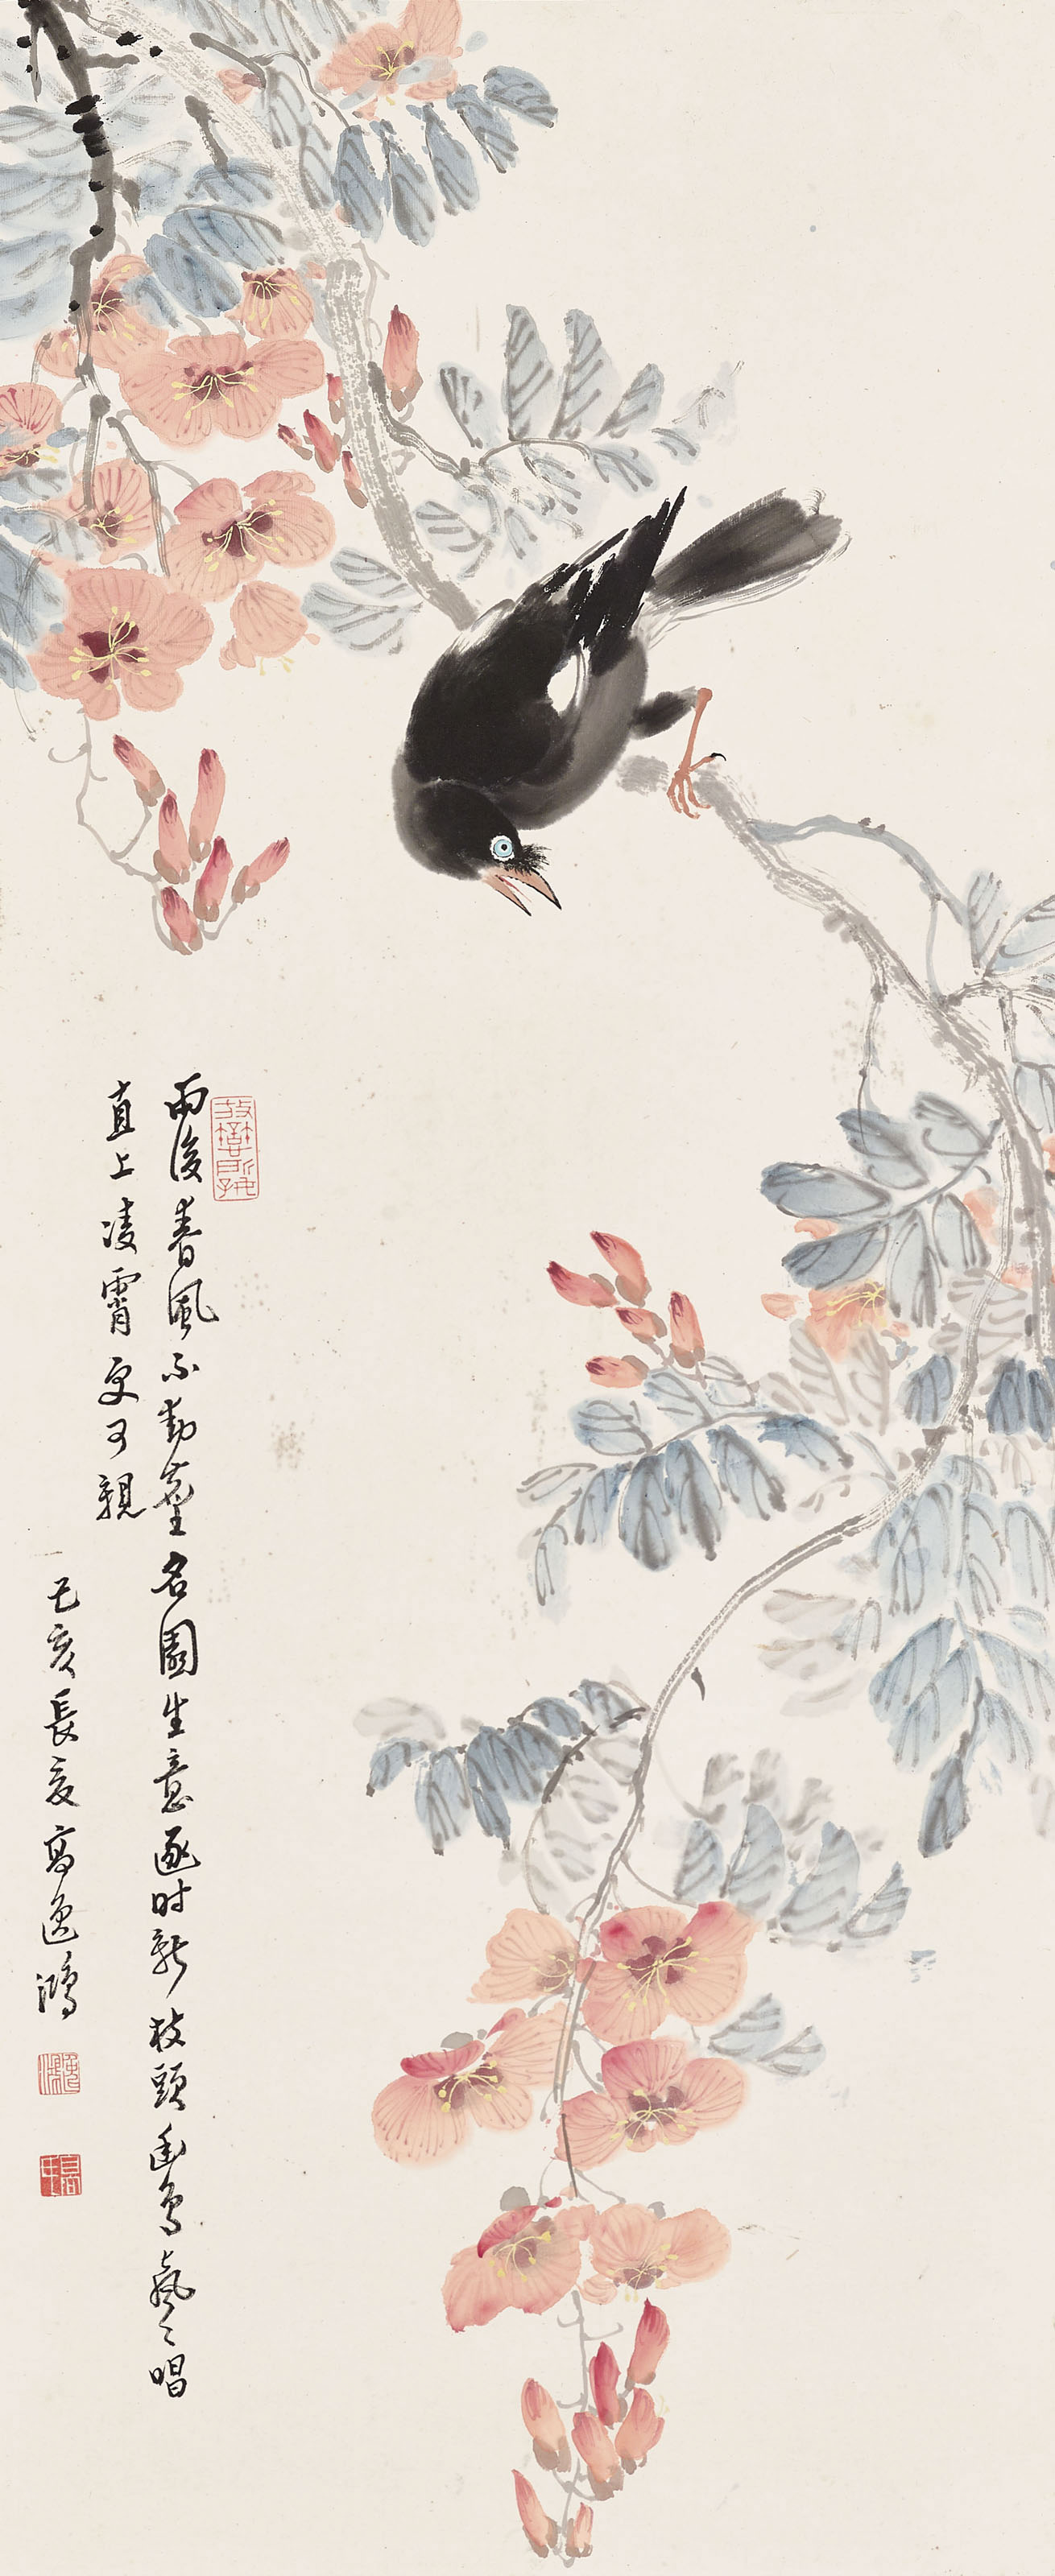 雨後春風不動塵名園生意逐時新枝頭幽鳥飛飛唱
直上凌霄更可親
己亥長夏高逸鴻
逸鴻